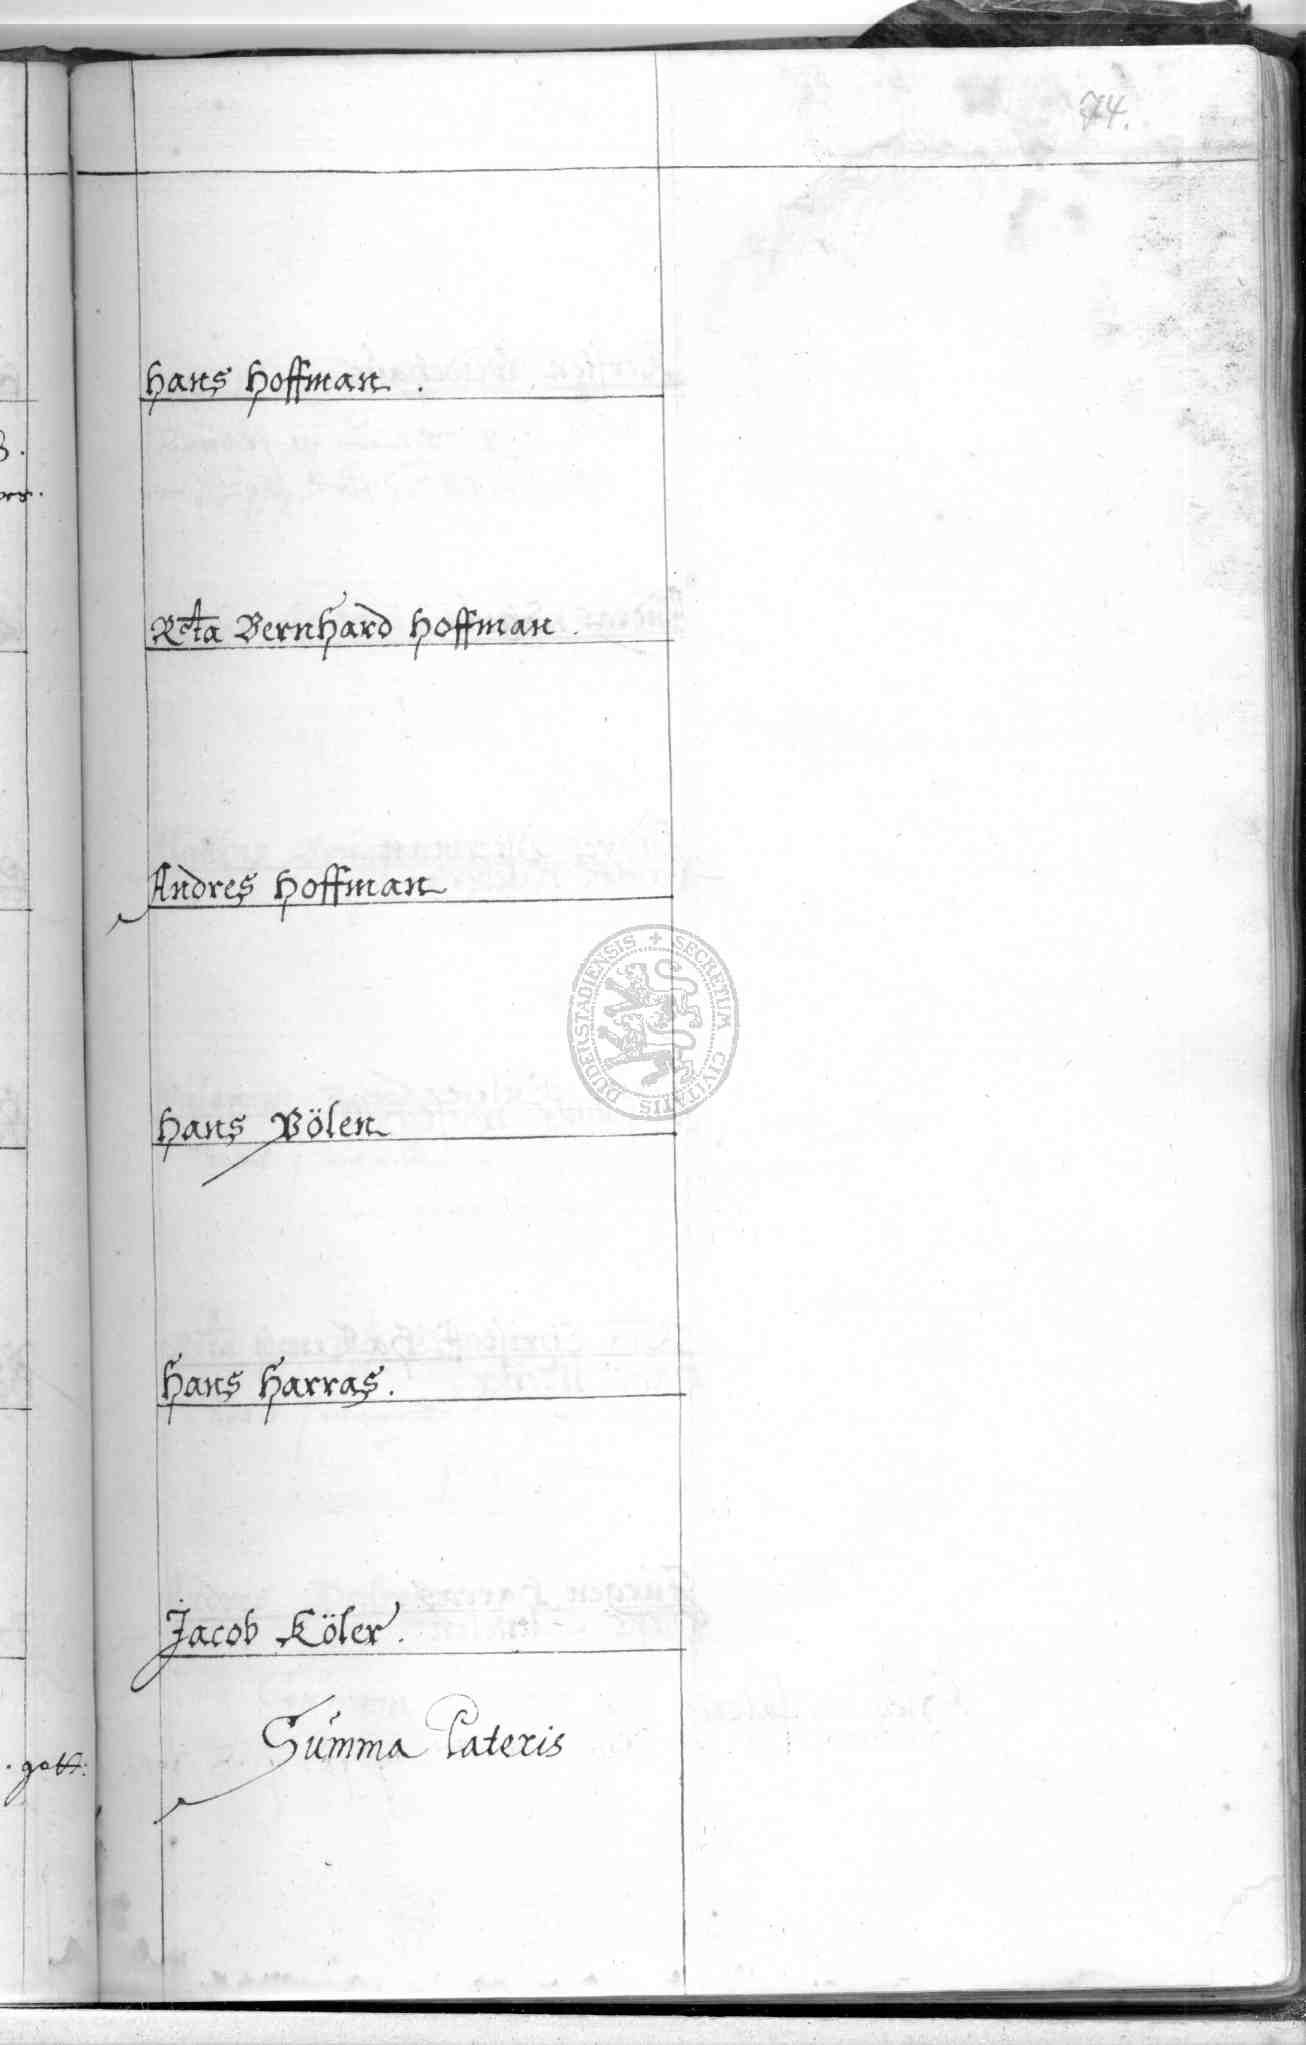 74.
Hans Hoffman.
Rcta Bernhard Hoffman.
Andres Hoffman
DUDERSTADIENSIS + SECRETUM CIVITATIS
Hans Völen
Hans Harras.
Jacob Köler.
Summa Lateris